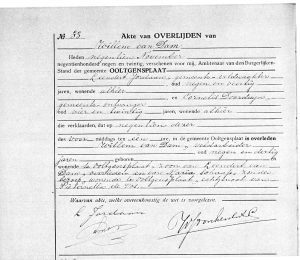 No 33
Akte van OVERLIJDEN van
Willem van Dam
Heden negentien November
negentienhonderd negen en twintig, verschenen voor mij, Ambtenaar van den Burgerlijken
Stand der gemeente OOLTGENSPLAAT
Leendert Jordaan, gemeente-veldwachter
oud negen en veertig
jaren, wonende alhier
en Cornelis
gemeente-ontvanger oud
vier en twintig jaren, wonende alhier
die verklaarden, dat op negentien dezer
des voor middags ten een ure, in de gemeente Ooltgensplaat is overleden
Willem van Dam, veldarbeider
oud negen en dertig
jaren, geboren
te Ooltgensplaat, zoon van Leendert van
Dam, overleden en van Maria zonder
beroep, wonende te Ooltgensplaat, echtgenoot van
Pieternella de Vos.
Waarvan akte, welke overeenkomstig de wet is voorgelezen.
L Jordaan